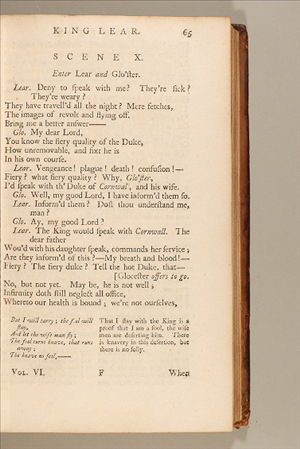 KING LEAR. 65
SCENE X.
Enter Lear and Glo'ster.
Lear. Deny to speak with me? They're sick?
They're weary?
They have travell'd all the night? Mere fetches,
The images of revolt and flying off.
Bring me a better answer——
Glo. My dear Lord,
You know the fiery quality of the Duke,
How unremovable, and fixt he is
In his own course.
Lear. Vengeance! plague! death! confusion!—
Fiery? what fiery quality? Why, Glo'ster,
I'd speak with th' Duke of Cornwal', and his wife.
Glo. Well, my good Lord, I have inform'd them so.
Lear. Inform'd them? Dost thou understand me,
man?
Glo. Ay, my good Lord?
Lear. The King would speak with Cornwall. The
dear father
Wou'd with his daughter speak, commands her service;
Are they inform'd of this?—My breath and blood!—
Fiery? The fiery duke? Tell the hot Duke, that—
[Glocester offers to go.
No, but not yet. May be, he is not well;
Infirmity doth still neglect all office,
Whereto our health is bound; we're not ourselves,
But I will tarry; the fool will
stay,
And let the wise man fly;
The fool turns knave, that runs
away;
The knave no fool,——
That I stay with the King is a
proof that I am a fool, the wise
men are deserting him. There
is knavery in this desertion, but
there is no folly.
VOL. VI. F When